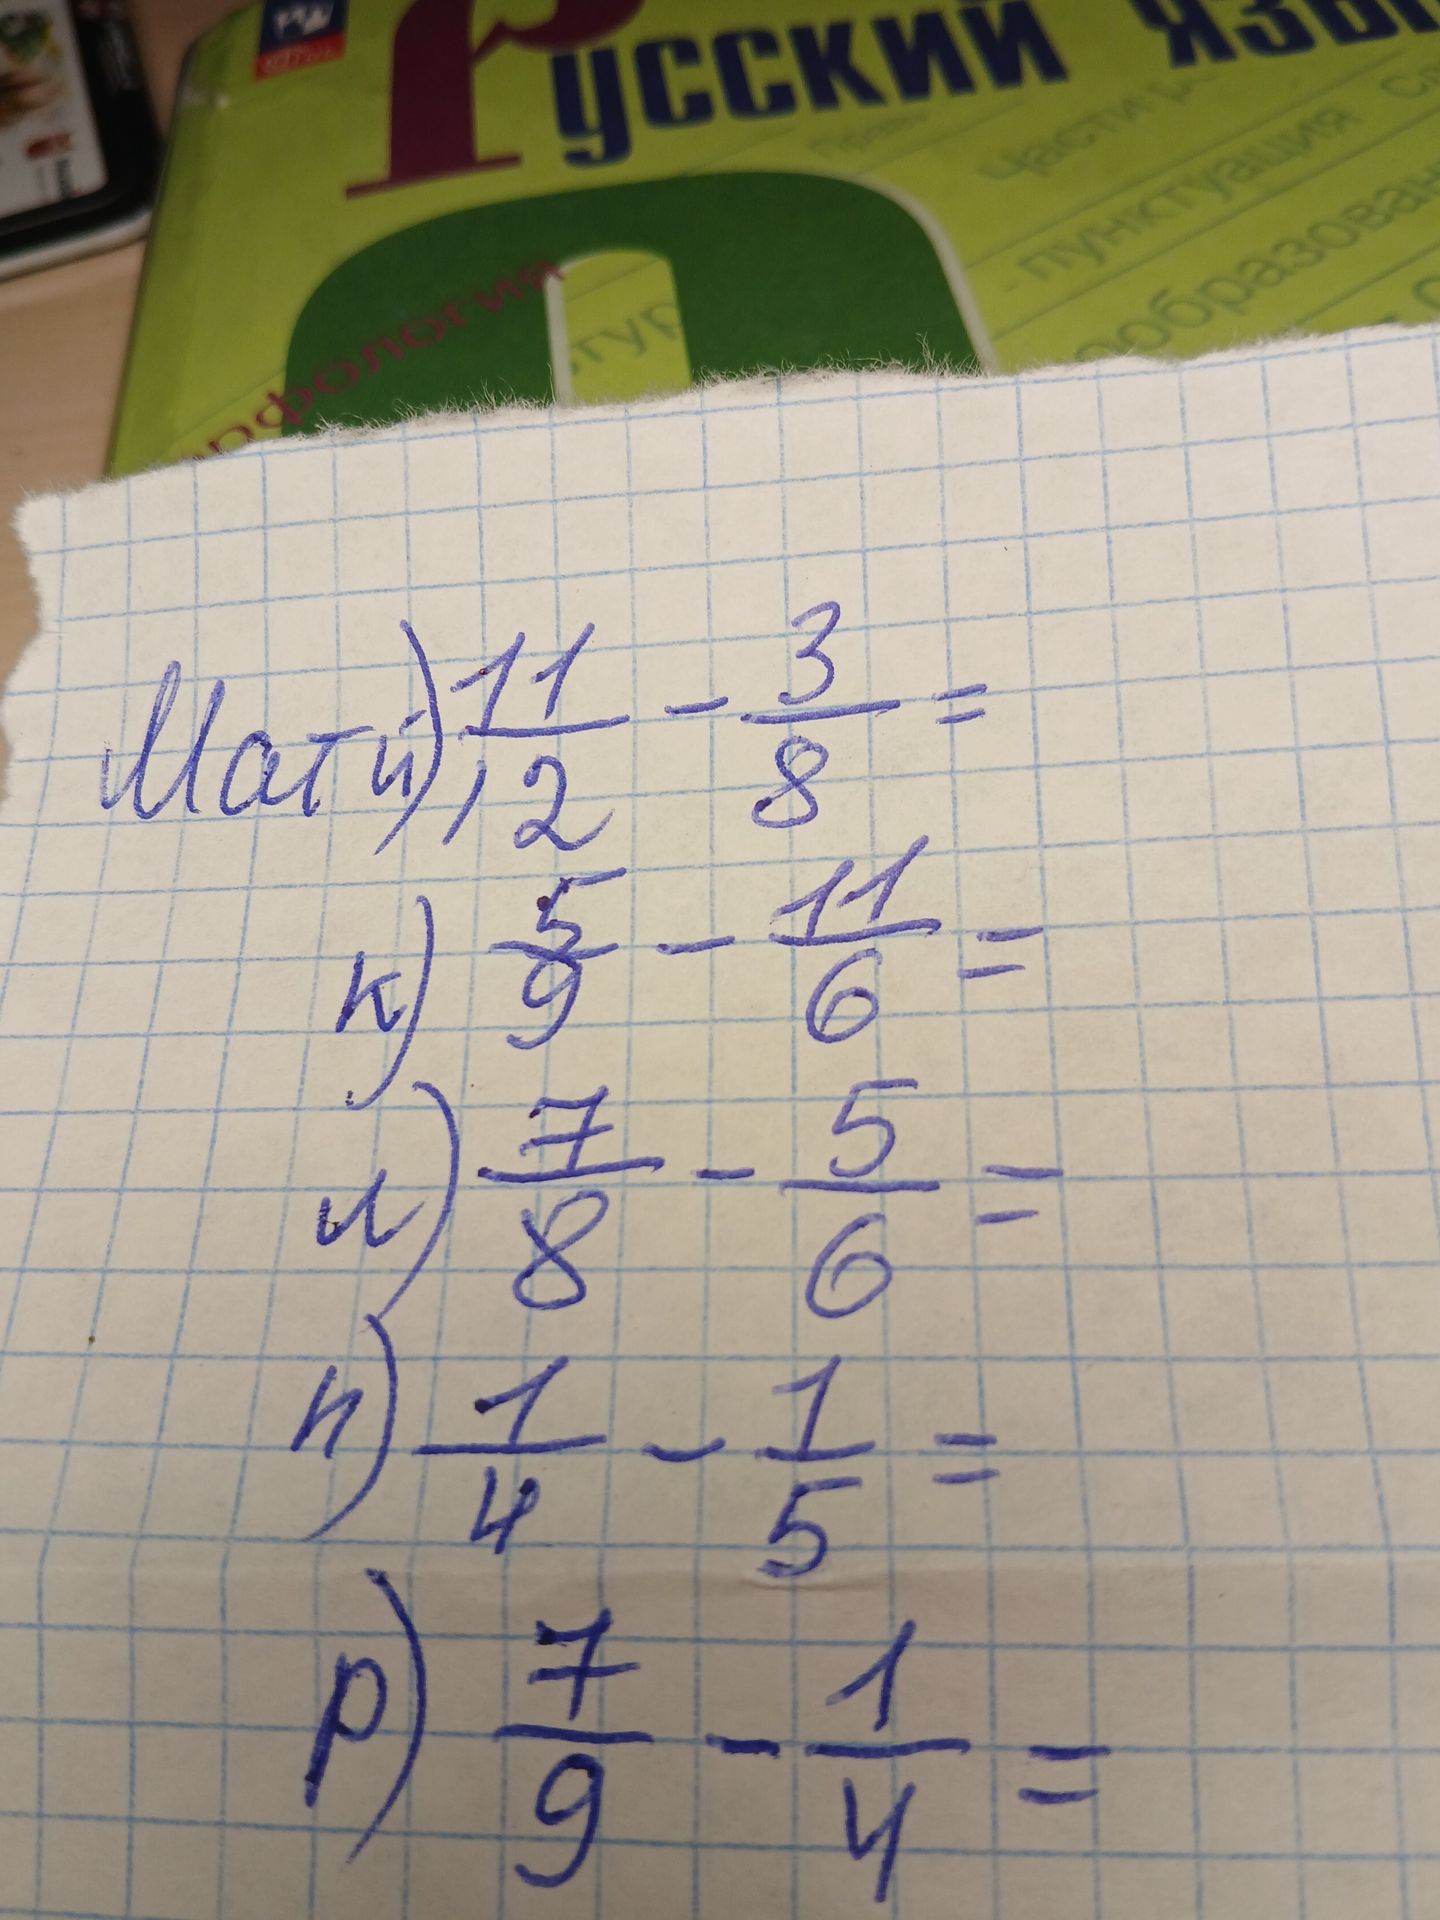 Русский язы
Части р
- пунктуация
ообразован
рфология
Мат й) 11/12 - 3/8 =
к) 5/9 - 11/6 =
л) 7/8 - 5/6 =
п) 1/4 - 1/5 =
р) 7/9 - 1/4 =